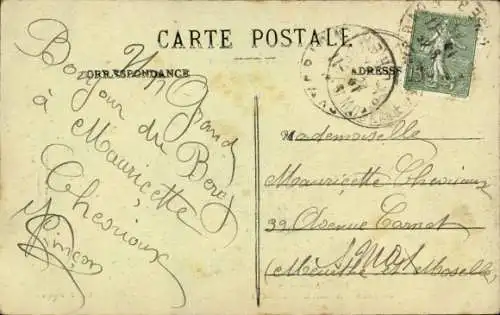 CARTE POSTALE
CORRESPONDANCE
ADRESSE
Un Grand
Bonjour du Berry
à Mauricette
Chevrioux
Mademoiselle
Mauricette Chevrioux
39 Avenue Carnot
(Meurthe et Moselle)